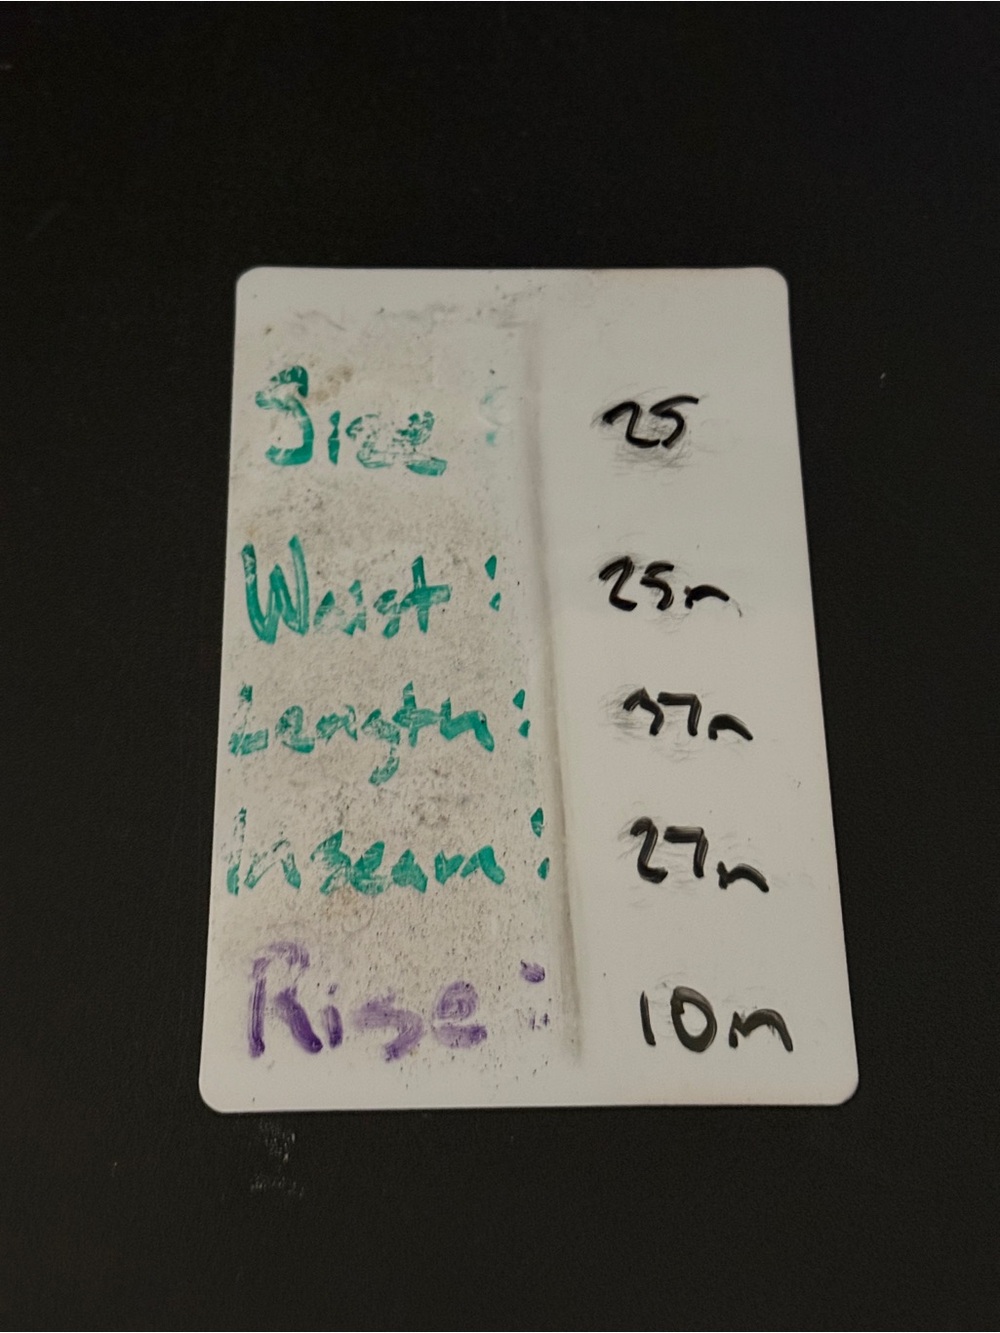 Size: 25
Waist: 25in
Length: 37in
Inseam: 27in
Rise: 10in